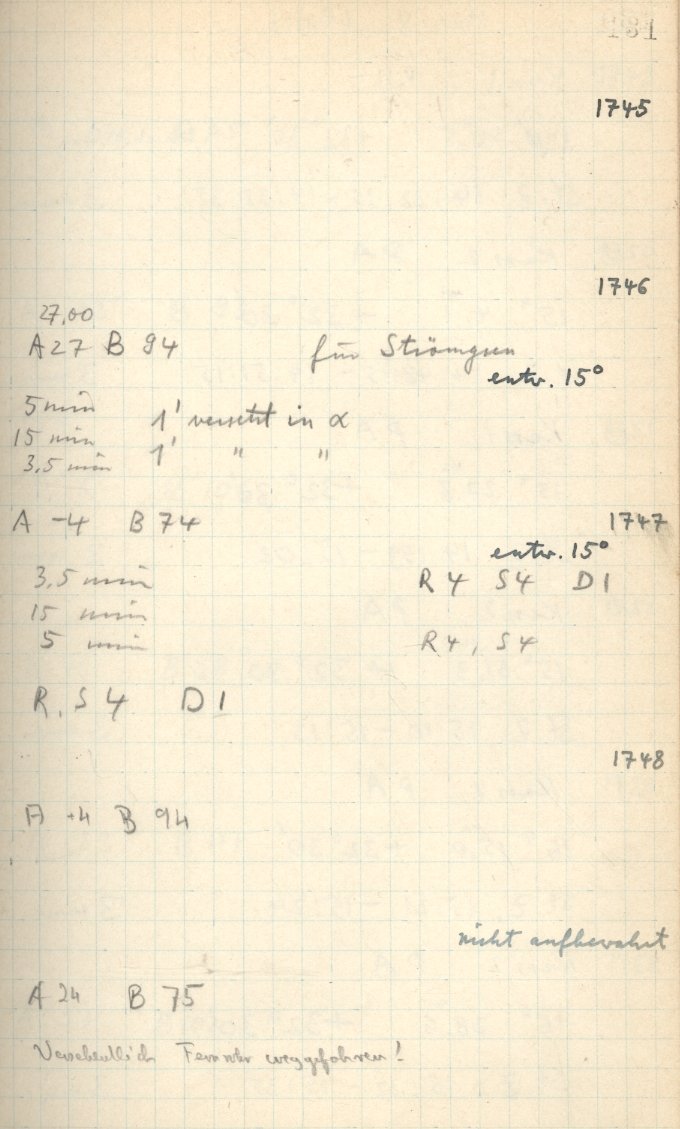 131
1745
1746
27,00
A 27 B 94 für Strömgren
entw. 15°
5 min 1' versetzt in α
15 min 1' " "
3,5 min
A -4 B 74 1747
entw. 15°
3,5 min R 4 S 4 D 1
15 min
5 min R 4, S 4
R, S 4 D 1
1748
A -4 B 94
nicht aufbewahrt
A 24 B 75
Versehentlich Fernrohr weggefahren!